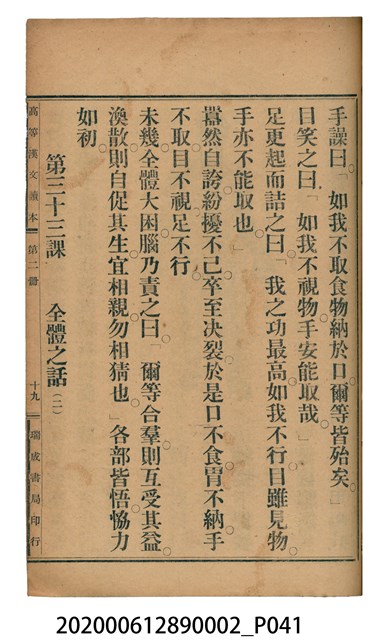 手譟曰「如我不取食物納於口爾等皆殆矣。」
目笑之曰「如我不視物手安能取哉。」
足更起而詰之曰「我之功最高如我不行目雖見物
手亦不能取也。」
囂然自誇紛擾不已卒至决裂於是口不食胃不納手
不取目不視足不行。
未幾全體大困腦乃責之曰「爾等合羣則互受其益
渙散則自促其生宜相親勿相猜也。」各部皆悟恊力
如初。
第三十三課　全體之話(二)
高等漢文讀本　第二冊　十九　瑞成書局印行
202000612890002_P041